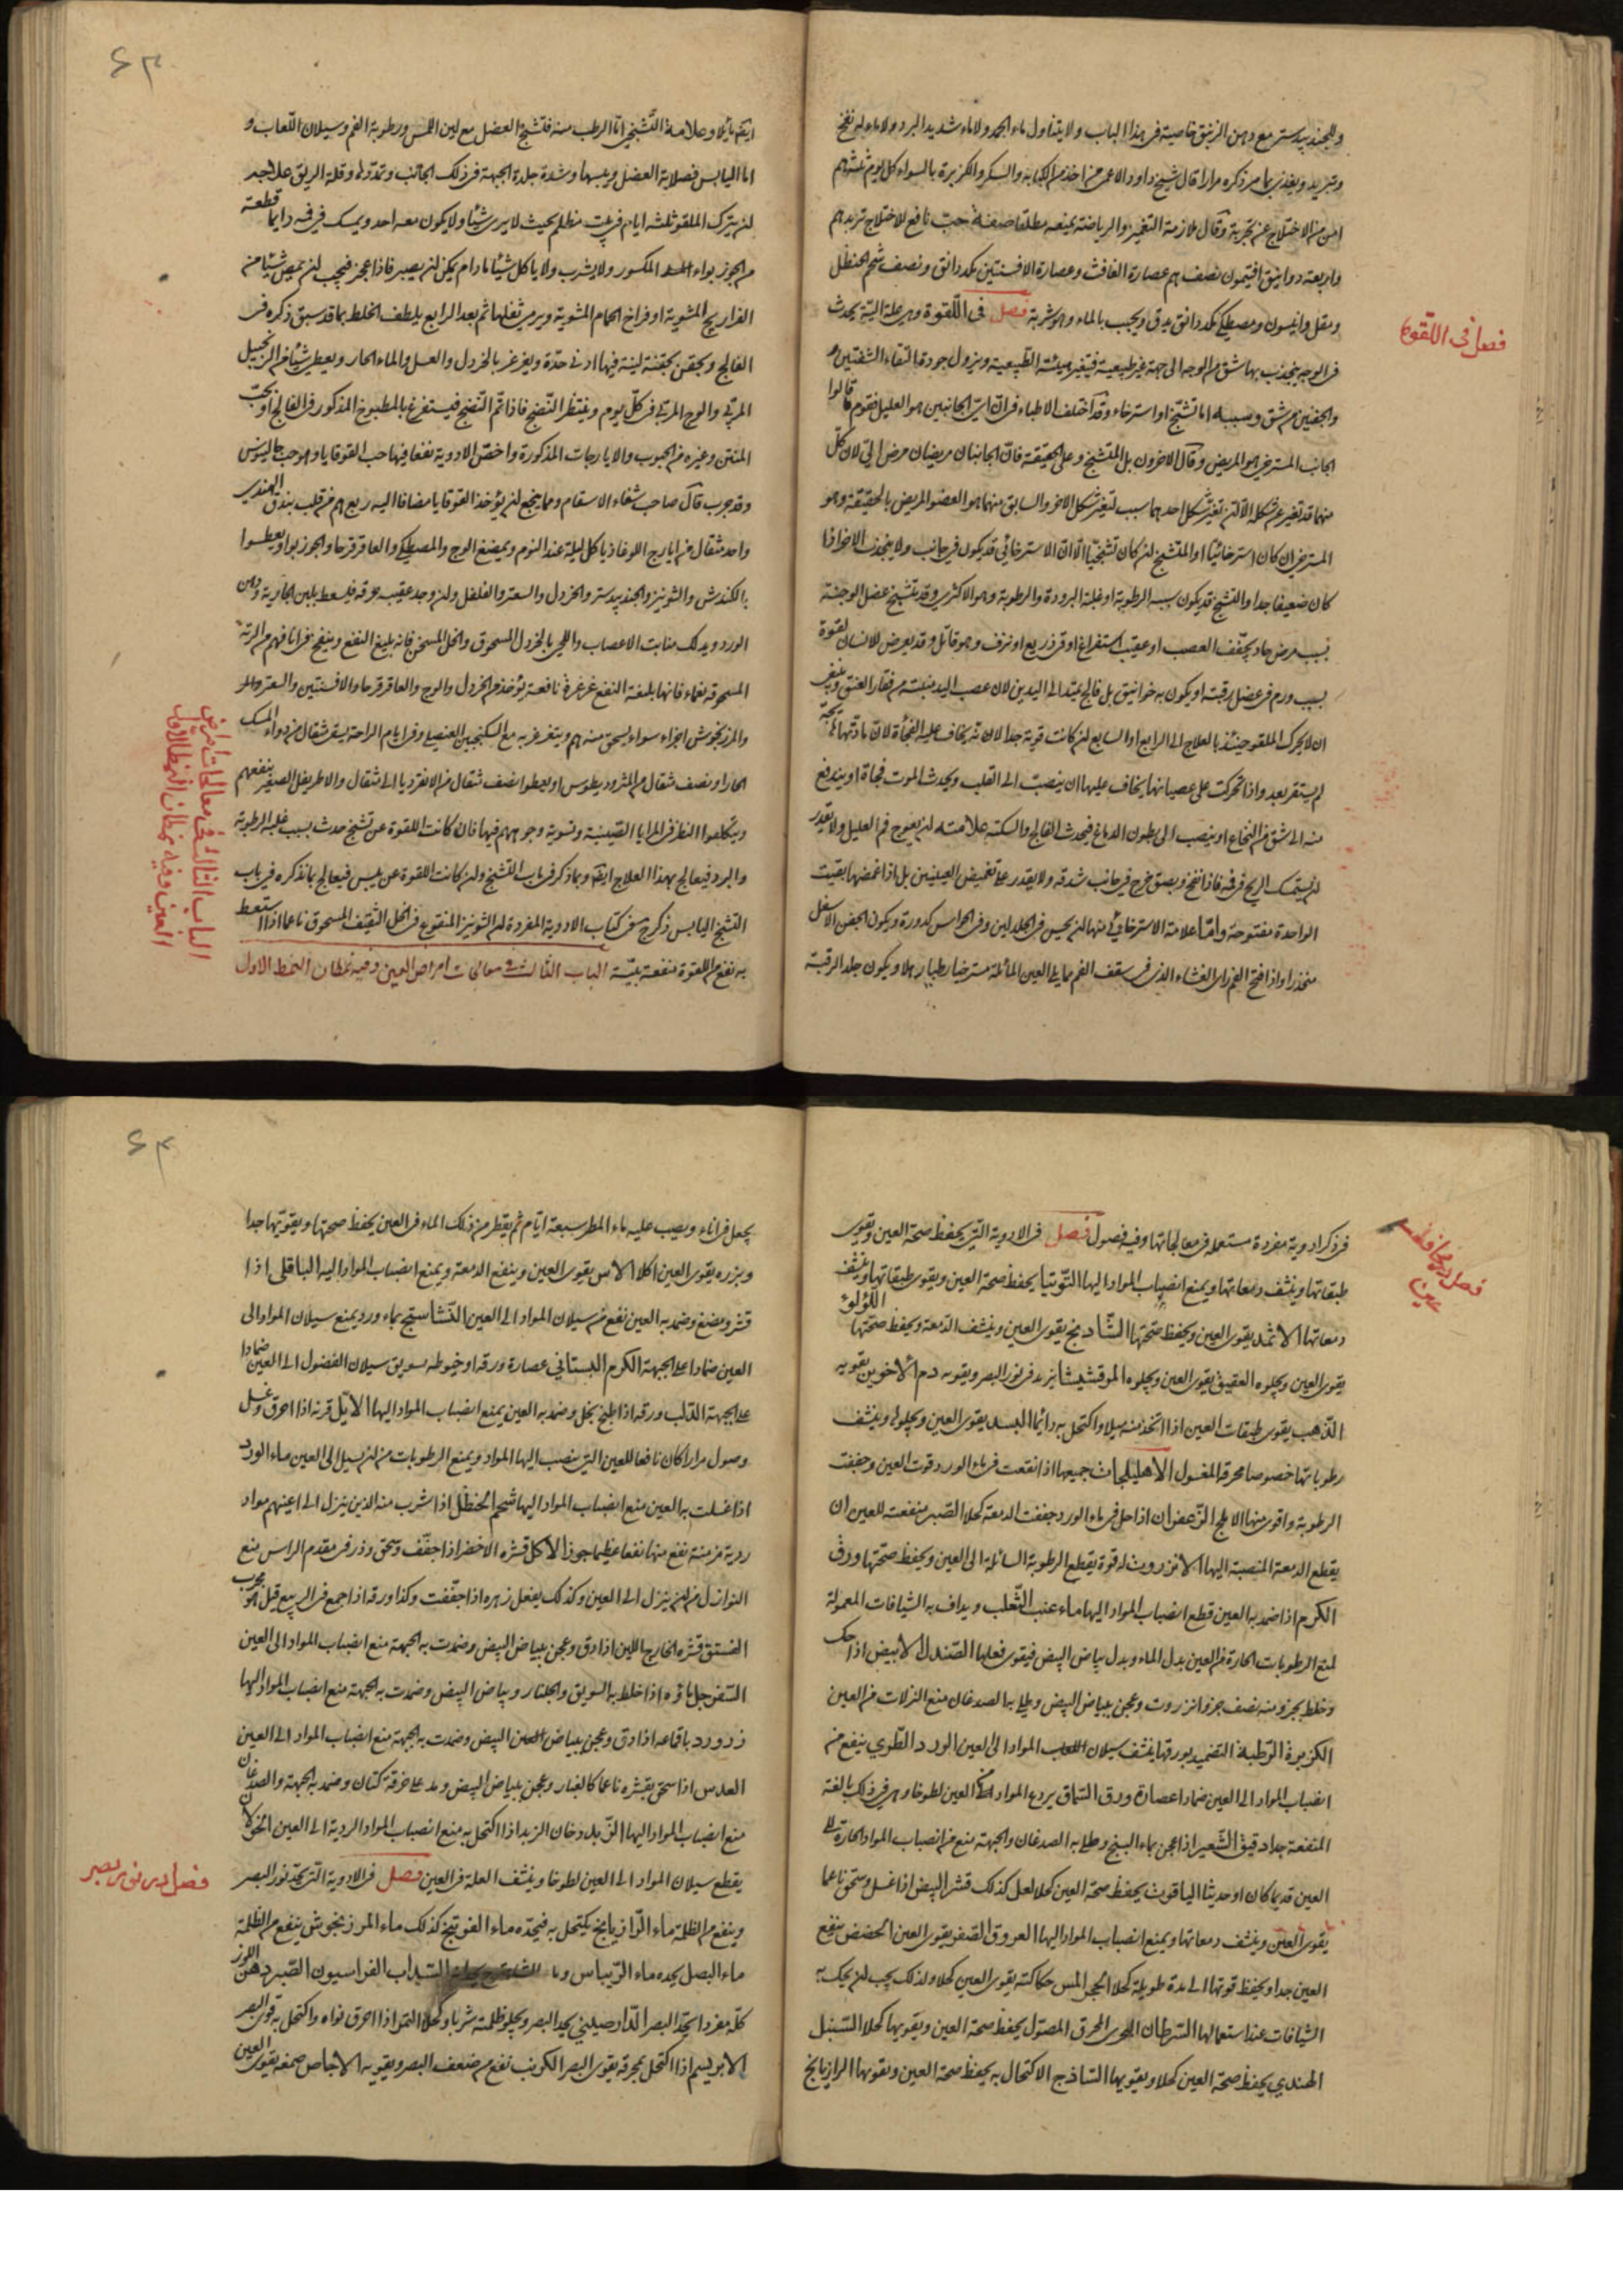 وللجندبيدستر مع دهن الزنبق خاصية في هذا الباب ولا يتناول ماء الجمد ولا ماء شديد البرد ولا ماء له نفخ
وتبريد ويغذى بما مر ذكره مرارا قال شيخ داود الاعمى من اخذ من الكبابة والسكر والكزبرة بالسواء كل يوم ثلثة
امن من الاختلاج عن تجربة وقال ملازمة التغميز والرياضة يمنعه مطلقا صفة حب نافع للاختلاج تربد
واربعة دوانيق افتيمون نصف عصارة الغافث وعصارة الافسنتين مكد دانق ونصف شحم الحنظل
ومقل وانيسون ومصطكى مكد دانق يدق ويحبب بالماء وهو شربة فصل في اللقوة وهي علة الية يحدث
في الوجه ينجذب بها شق من الوجه الى جهة غير طبيعية فيتغير هيئته الطبيعية ويزول جودة التقاء الشفتين
والجفنين من شق وسببه اما تشنج او استرخاء وقد اختلف الاطباء في ان اي الجانبين هو العليل فقوم قالوا
الجانب المسترخي هو المريض وقال الاخرون بل المتشنج وعلى الحقيقة فان الجانبان مريضان مرض الي لان كل
منهما قد تغير عن شكله الا ان تغير شكل احدهما سبب لتغير شكل الاخر والسابق منهما هو العضو المريض بالحقيقة وهو
المسترخي ان كان استرخائيا او المتشنج ان كان تشنجيا الا ان الاسترخائي قد يكون في جانب ولا ينجذب الاخر اذا
كان ضعيفا جدا والتشنج قد يكون سببه الرطوبة او غلبة البرودة والرطوبة وهو الاكثري وقد يتشنج عضل الوجنة
بسبب مرض حاد يجفف العصب او عقيب استفراغ او قي ذريع او نزف وهو قاتل وقد يعرض للانسان لقوة
بسبب ورم في عضل رقبته او يكون به خوانيق بل فالج يمتد الى اليدين لان عصب اليد منبته من فقار العنق وينبغي
ان لا يحرك الملقو حينئذ بالعلاج الى الرابع او السابع ان كانت قوية جدا لانه يخاف عليه الفجأة لان مادتها
لم يستقر بعد واذا تحركت على عصيانها يخاف عليها ان ينصب الى القلب ويحدث الموت فجاة او يندفع
منه الى شق من النخاع او ينصب الى بطون الدماغ فيحدث الفالج والسكتة علامته ان يعوج فم العليل ولا يقدر
ان يستمسك الريح في فيه فاذا نفخ وبصق خرج في جانب شدقه ولا يقدر على تغميض العينين بل اذا غمضها بقيت
الواحدة مفتوحة واما علامة الاسترخائي منها ان يحس في الجلد لين وفي الحواس كدورة ويكون الجفن الاسفل
منحدرا واذا فتح الفم راى الغشاء الذي في سقف الفم مما يلي العين المائلة مسترخيا رطبا رهلا ويكون جلد الرقبة
فصل في اللقوة
ايضا مائلا وعلامة التشنجي اما الرطب منه فتشنج العضل مع لين اللمس ورطوبة الفم وسيلان اللعاب و
اما اليابس فصلابة العضل ويبسها وشدة جلدة الجبهة في ذلك الجانب وتمدده وقلة الريق علاجه
ان يترك الملقو ثلثة ايام في بيت مظلم بحيث لا يرى شيئا ولا يكون معه احد ويمسك في فيه دايما قطعة
من الجوز بواء المكسور ولا يشرب ولا ياكل شيئا ما دام يمكن ان يصبر فاذا عجز فيجب ان يمص شيئا من
الفراريج المشوية او فراخ الحمام المشوية ويرمى ثفلها ثم بعد الرابع يلطف الخلط بما قد سبق ذكره في
الفالج ويحقن بحقنة لينة فيها ادنى حدة ويغرغر بالخردل والعسل والماء الحار ويعطى شيئا من الزنجبيل
المربى والوج المربى في كل يوم وينتظر النضج فاذا تم النضج فيستفرغ بالمطبوخ المذكور في الفالج او بحب
المنتن وغيره من الحبوب والايارجات المذكورة واخص الادوية نفعا فيها حب القوقايا وهو حب جالينوس
وقد جرب قال صاحب شفاء الاسقام ومما ينجع ان يؤخذ القوقايا مضافا اليه ربع من قلب بندق الهندي
واحد مثقال من ايارج اللوغاذيا كل ليلة عند النوم ويمضغ الوج والمصطكى والعاقرقرحا والجوز بوا ويعطسوا
بالكندش والشونيز والجندبيدستر والخردل والسعتر والفلفل وان وجد عقيبه حرقة فليسعط بلبن الجارية ودهن
الورد ويدلك منابت الاعصاب واللحي بالخردل المسحوق والخل المسخن فانه بليغ النفع وينفخ في انافهم من الرتة
المسحوقة نعما فانها بليغة النفع غرغرة نافعة يؤخذ من الخردل والوج والعاقرقرحا والافسنتين والسعتر
والمرزنجوش اجزاء سواء يسحق منه ويتغرغر به مع السكنجبين العنصلي وفي ايام الراحة يسقى مثقال من دواء المسك
الحار او نصف مثقال من المثروديطوس او يعطوا نصف مثقال من الانقرديا الى مثقال والاطريفل الصغير ينفعهم
ويتكلفوا النظر في المرايا الصينية وتسوية وجوههم فيها فان كانت اللقوة عن تشنج حدث بسبب غلبة الرطوبة
والبرد فيعالج بهذا العلاج ايضا وبما ذكر في باب التشنج وان كانت اللقوة عن يبس فيعالج بما نذكره في باب
التشنج اليابس ذكر ج في كتاب الادوية المفردة ان الشونيز المنقوع في الخل الثقيف المسحوق ناعما اذا استعط
به نفع من اللقوة منفعة بينة الباب الثالث في معالجات امراض العين وفيه نمطان النمط الاول
الباب الثالث في معالجات امراض
العين وفيه نمطان النمط الاول
في ذكر ادوية مفردة مستعملة في معالجاتها وفيه فصول فصل في الادوية التي يحفظ صحة العين ويقوى
طبقاتها وينشف دمعاتها ويمنع انصباب المواد اليها التوتيا يحفظ صحة العين ويقوى طبقاتها وينشف
دمعاتها الاثمد يقوى العين ويحفظ صحتها الشادنج يقوى العين وينشف الدمعة ويحفظ صحتها اللؤلؤ
يقوى العين ويجلوه العقيق يقوى العين ويجلوه المرقشيشا يزيد في نور البصر ويقويه دم الاخوين يقويه
الذهب يقوى طبقات العين اذا اتخذ منه ميلا واكتحل به دائما البسد يقوى العين ويجلوه وينشف
رطوباتها خصوصا محرقه المغسول الاهليلجات جميعها اذا نقعت في ماء الورد قوت العين وجففت
الرطوبة واقوى منها الاملج الزعفران اذا حل في ماء الورد جففت الدمعة كحلا الصبر منفعته للعين ان
يقطع الدمعة المنصبة اليها الانزروت له قوة يقطع الرطوبة السائلة الى العين ويحفظ صحتها ورق
الكرم اذا ضمد به العين قطع انصباب المواد اليها ماء عنب الثعلب ويداف به الشيافات المعمولة
لمنع الرطوبات الحارة من العين بدل الماء وبدل بياض البيض فيقوى فعلها الصندل الابيض اذا حك
وخلط بجزء منه نصف جزء انزروت وعجن ببياض البيض وطلى به الصدغان منع النزلات من العين
الكزبرة الرطبة التضميد بورقها ينشف سيلان المواد الى العين الورد الطري ينفع من
انصباب المواد الى العين ضمادا عصارة ورق السماق يردع المواد عن العين لطوخا وهي في ذلك بالغة
المنفعة جدا دقيق الشعير اذا عجن بماء البنج وطلى به الصدغان والجبهة منع من انصباب المواد الحارة الى
العين قديما كان او حديثا الياقوت يحفظ صحة العين كحلا لعل كذلك قشر البيض اذا غسل وسحق ناعما
يقوى العين وينشف دمعاتها ويمنع انصباب المواد اليها العروق الصفر يقوى العين الحضض ينفع
العين جدا ويحفظ قوتها الى مدة طويلة كحلا الحجر المس حكاكته يقوى العين كحلا ولذلك يجب ان يحك به
الشيافات عند استعمالها السرطان البحري المحرق المصول يحفظ صحة العين ويقويها كحلا السنبل
الهندي يحفظ صحة العين كحلا ويقويها الساذج الاكتحال به يحفظ صحة العين ويقويها الرازيانج
فصل در محافظت
عين
يجعل في اناء ويصب عليه ماء المطر سبعة ايام ثم يقطر من ذلك الماء في العين يحفظ صحتها ويقويها جدا
وبزره يقوى العين اكلا الاس يقوى العين وينفع الدمعة ويمنع انصباب المواد اليه الباقلى اذا
قشر ومضغ وضمد به العين نفع من سيلان المواد الى العين النشاستج بماء ورد يمنع سيلان المواد الى
العين ضمادا على الجبهة الكرم البستاني عصارة ورقه او خيوطه بسويق سيلان الفضول الى العين ضمادا
على الجبهة الدلب ورقه اذا طبخ بخل وضمد به العين يمنع انصباب المواد اليها الايل قرنه اذا احرق وغسل
وصول مرارا كان نافعا للعين التي ينصب اليها المواد ويمنع الرطوبات من ان يسيل الى العين ماء الورد
اذا غسلت به العين منع انصباب المواد اليها شحم الحنظل اذا شرب منه الذين ينزل الى اعينهم مواد
ردية مزمنة نفع منها نفعا عظيما جوز الاكل قشره الاخضر اذا جفف وسحق وذر في مقدم الراس منع
النوازل من ان ينزل الى العين وكذلك يفعل زهره اذا جففت وكذا ورقه اذا جمع في الربيع قيل هو مجرب
الفستق قشره الخارج اللين اذا دق وعجن ببياض البيض وضمدت به الجبهة منع انصباب المواد الى العين
السفرجل ماؤه اذا خلط به السويق والجلنار وبياض البيض وضمدت به الجبهة منع انصباب المواد اليها
زر ورد باقماعه اذا دق وعجن ببياض البيض وضمدت به الجبهة منع انصباب المواد الى العين
العدس اذا سحق بقشره ناعما كالغبار وعجن ببياض البيض ومد على خرقة كتان وضمد به الجبهة والصدغان
منع انصباب المواد اليها الزبد دخان الزبد اذا اكتحل به منع انصباب المواد الردية الى العين الخولان
يقطع سيلان المواد الى العين لطوخا وينشف العلة في العين فصل في الادوية التي يحد نور البصر
وينفع من الظلمة ماء الرازيانج يكتحل به فيحده ماء الفوتنج كذلك ماء المرزنجوش ينفع من الظلمة
ماء البصل يحده ماء الريباس السداب الفراسيون الصبر دهن اللوز
كله مفردا يحد البصر الدارصيني يحد البصر ويجلو ظلمته شربا وكحلا التمر اذا احرق نواه واكتحل به قوى البصر
الابريسم اذا اكتحل بمحرقه يقوى البصر الكرنب نفع من ضعف البصر ويقويه الاجاص صمغه يقوى العين
فصل در نور بصر